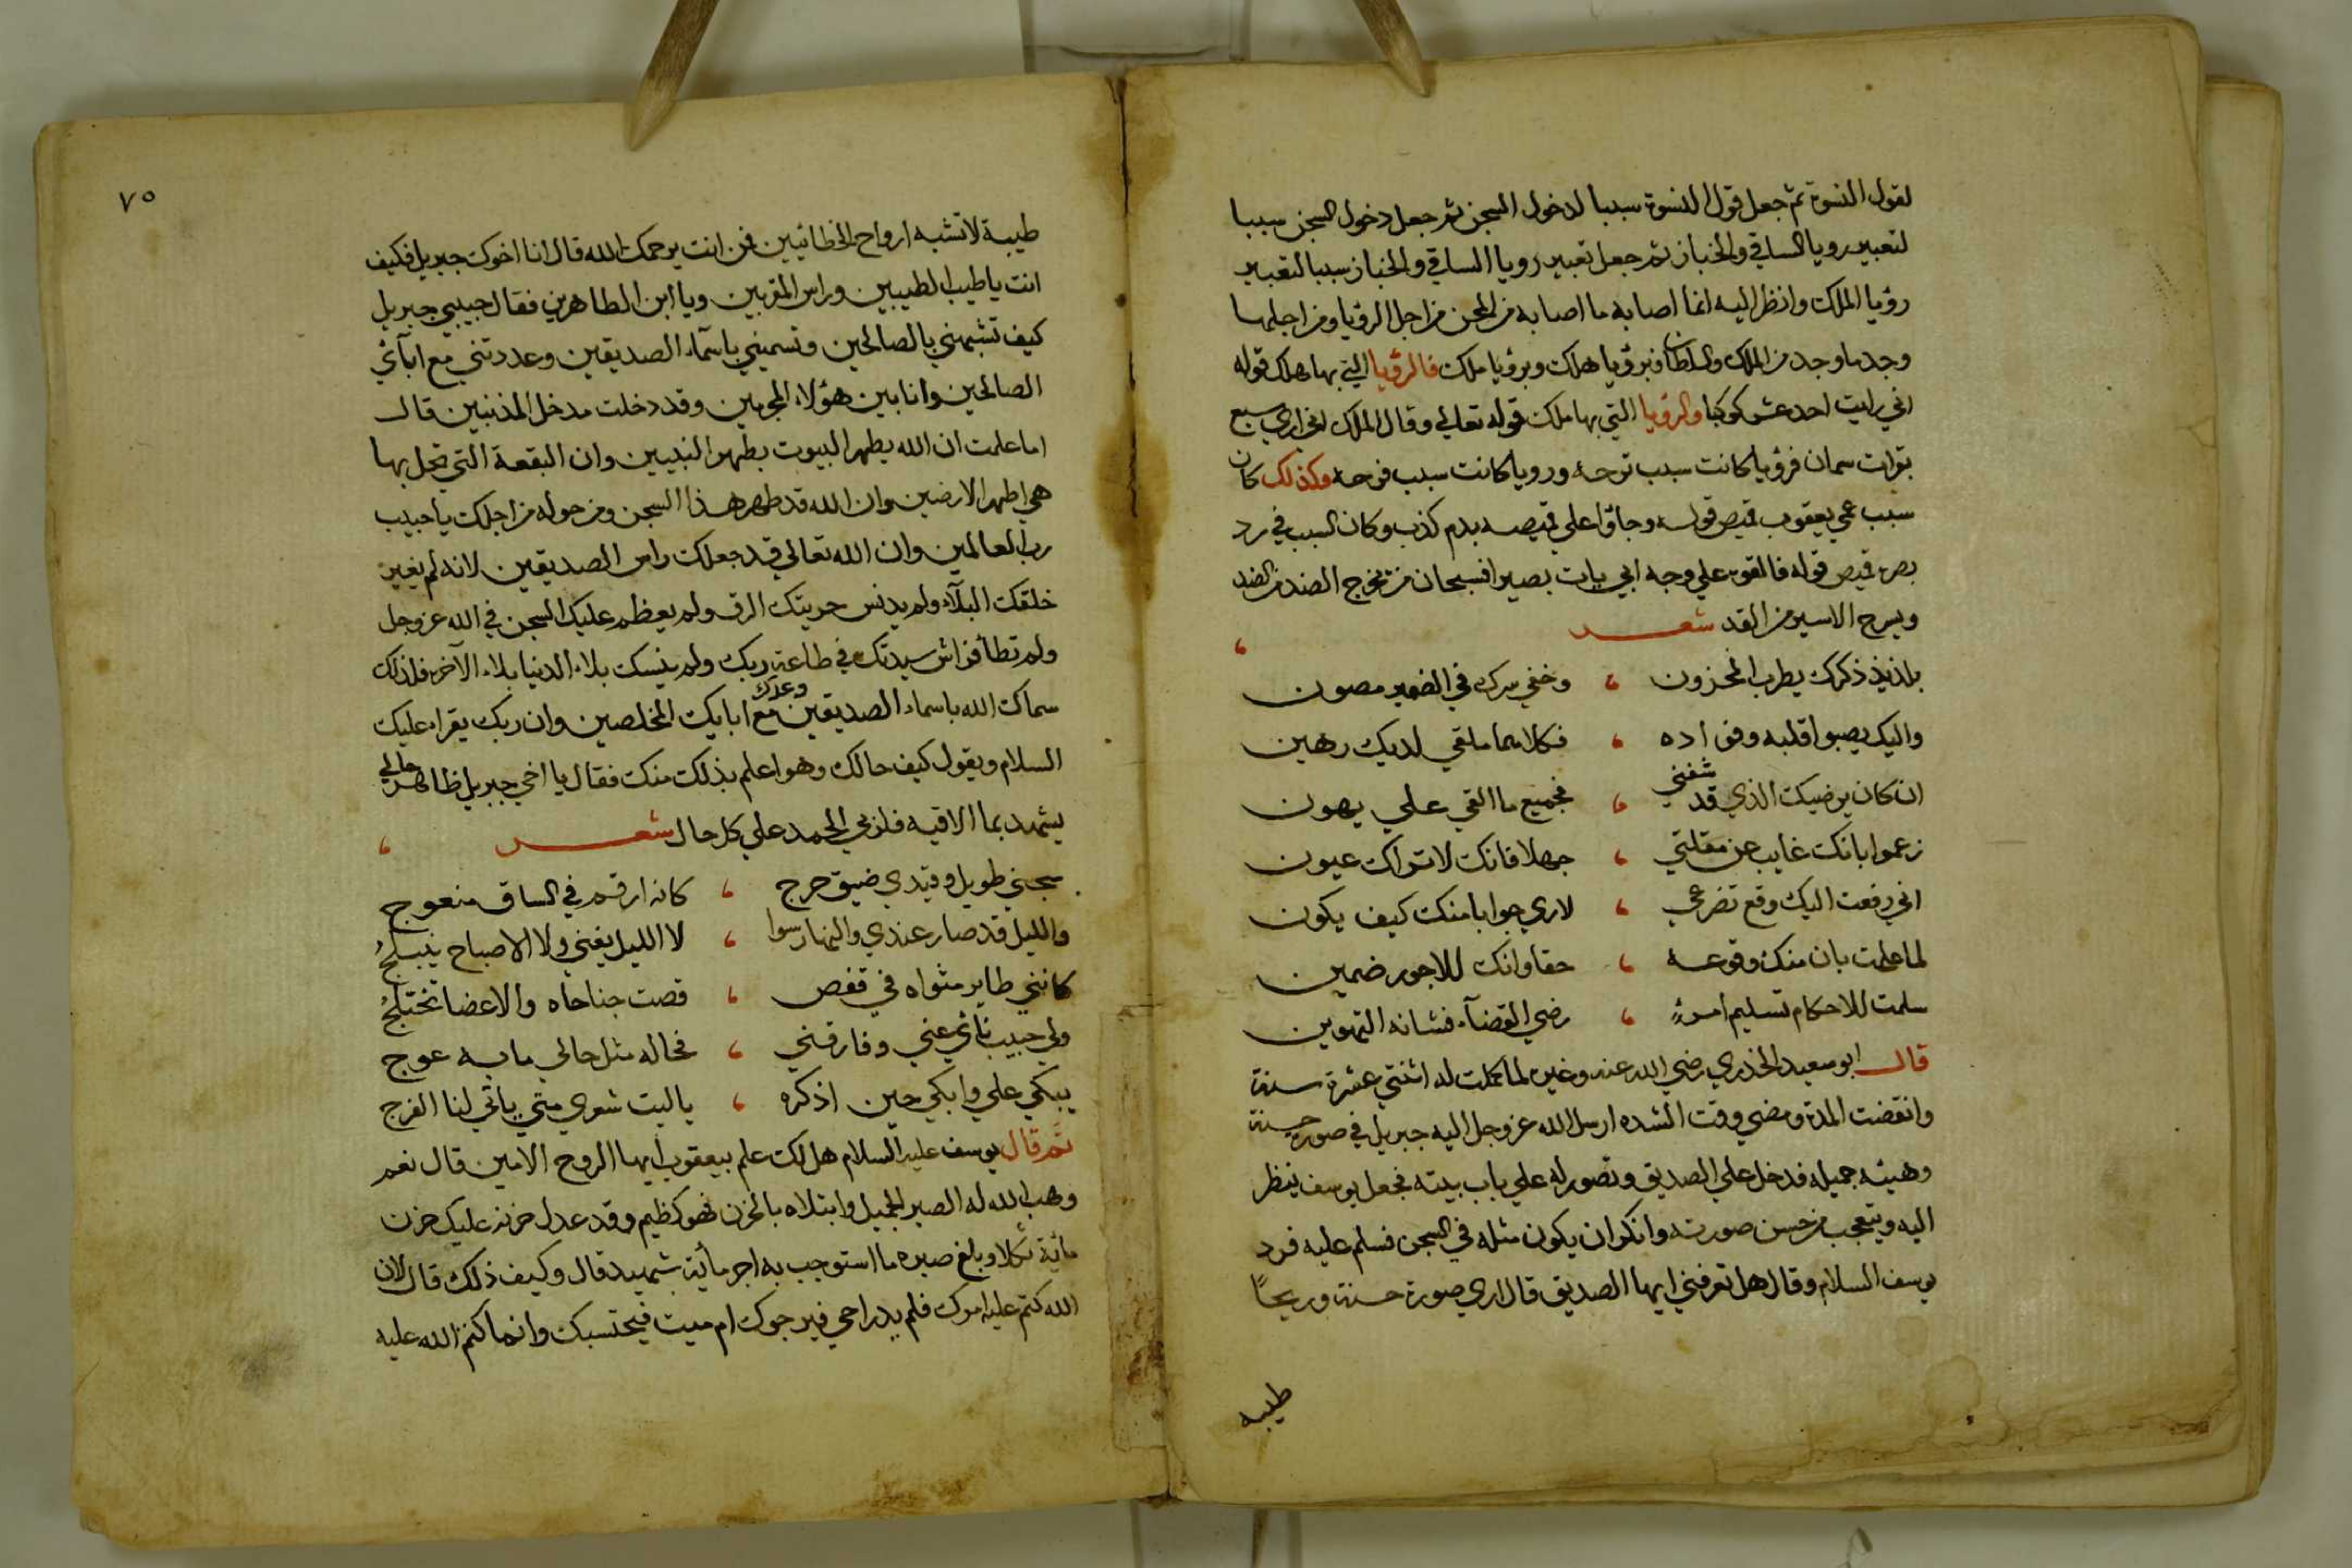 لقول النسوة ثم جعل قول النسوة سببا لدخول السجن ثم جعل دخول السجن سببا
لتعبير رويا الساقي والخباز ثم جعل تعبير رويا الساقي والخباز سببا لتعبير
رؤيا الملك وانظر اليه انما اصابه ما اصابه من المحن من اجل الرؤيا ومن اجلها
وجد ما وجد من الملك والسلطان فبرؤيا هلك وبرؤيا ملك فالرؤيا التي بها هلك قوله
اني رايت احد عشر كوكبا والرؤيا التي بها ملك قوله تعالي وقال الملك اني اري سبع
بقرات سمان فرؤيا كانت سبب ترحه ورويا كانت سبب فرحه وكذلك كان
سبب عمي يعقوب قميص قوله وجاؤا علي قميصه بدم كذب وكان السبب في رد
بصره قميص قوله فالقوه علي وجه ابي يات بصيرا فسبحان من يخرج الضد من الضد
ويسرح الاسير من القد شعر
بلذيذ ذكرك يطرب المحزون ، وخفي سرك في الضمير مصون
واليك يصبوا قلبه وفؤاده ، فكلاهما ملقي لديك رهين
ان كان يرضيك الذي قد شفني ، فجميع ما القي علي يهون
زعموا بانك غايب عن مقلتي ، جهلا فانك لا تراك عيون
اني رفعت اليك وقع تضرعي ، لاري جوابا منك كيف يكون
لما علمت بان منك وقوعه ، حقا وانك للاجور ضمين
سلمت للاحكام تسليم امرئ ، رضي القضآء فشانه التهوين
قال ابو سعيد الخدري رضي الله عنه وغيره لما كملت له اثنتي عشرة سنة
وانقضت المدة ومضي وقت الشده ارسل الله عز وجل اليه جبريل في صورة حسنة
وهيئه جميله فدخل علي الصديق وتصور له علي باب بيته فجعل يوسف ينظر
اليه ويتعجب من حسن صورته وانكر ان يكون مثله في السجن فسلم عليه فرد
يوسف السلام وقال هل تعرفني ايها الصديق قال اري صورة حسنة وريحاً
طيبه
٧٥
طيبة لا تشبه ارواح الخطائيين فمن انت يرحمك الله قال انا اخوك جبريل فكيف
انت يا طيب الطيبين وراس المقربين ويا ابن الطاهرين فقال حبيبي جبريل
كيف تشبهني بالصالحين وتسميني باسمآء الصديقين وعددتني مع ابآئي
الصالحين وانا بين هؤلاء المجرمين وقد دخلت مدخل المذنبين قال
اما علمت ان الله يطهر البيوت بطهر النبيين وان البقعة التي تحل بها
هي اطهر الارضين وان الله قد طهر هذا السجن ومن حوله من اجلك يا حبيب
رب العالمين وان الله تعالي قد جعلك راس الصديقين لانه لم يغير
خلقك البلآء ولم يدنس حريتك الرق ولم يعظم عليك السجن في الله عز وجل
ولم تطأ فراش سيدتك في طاعة ربك ولم ينسك بلاء الدنيا بلاء الآخره فلذلك
سماك الله باسماء الصديقين وعدك مع ابايك المخلصين وان ربك يقراء عليك
السلام ويقول كيف حالك وهو اعلم بذلك منك فقال يا اخي جبريل ظاهر حالي
يشهد بما الاقيه فلربي الحمد علي كل حال شعر ،
سجني طويل وقيدي ضيق حرج ، كانه ارقم في الساق منعوج
والليل قد صار عندي والنهار سوا ، لا الليل يفني ولا الاصباح ينبلج
كانني طاير مثواه في قفص ، قصت جناحاه والاعضا تختلج
ولي حبيب نأي عني وفارقني ، فحاله مثل حالي ما به عوج
يبكي علي وابكي حين اذكره ، ياليت شعري متي ياتي لنا الفرج
ثم قال يوسف عليه السلام هل لك علم بيعقوب ايها الروح الامين قال نعم
وهب الله له الصبر الجميل وابتلاه بالحزن فهو كظيم وقد عدل حزنه عليك حزن
مائة ثكلا وبلغ صبره ما استوجب به اجر مأية شهيد قال وكيف ذلك قال لان
الله كتم عليه امرك فلم يدر احي فيرجوك ام ميت فيحتسبك وانما كتم الله عليه